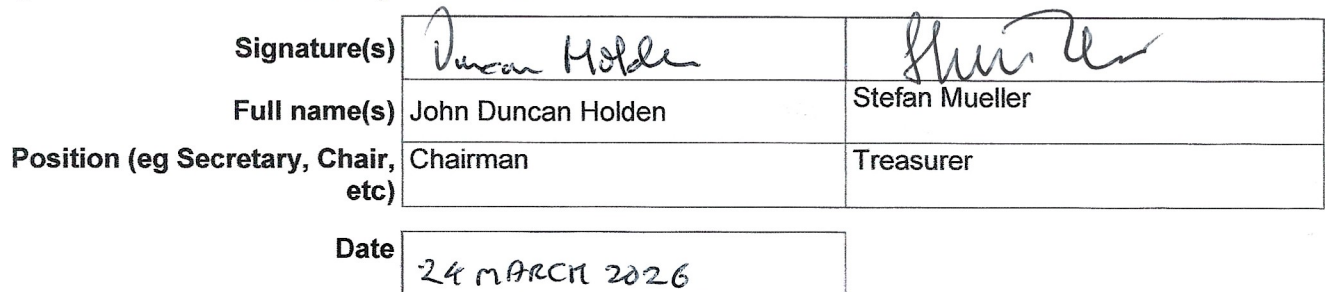 Signature(s) Duncan Holden
Full name(s) John Duncan Holden Stefan Mueller
Position (eg Secretary, Chair, Chairman Treasurer
etc)
Date 24 MARCH 2026